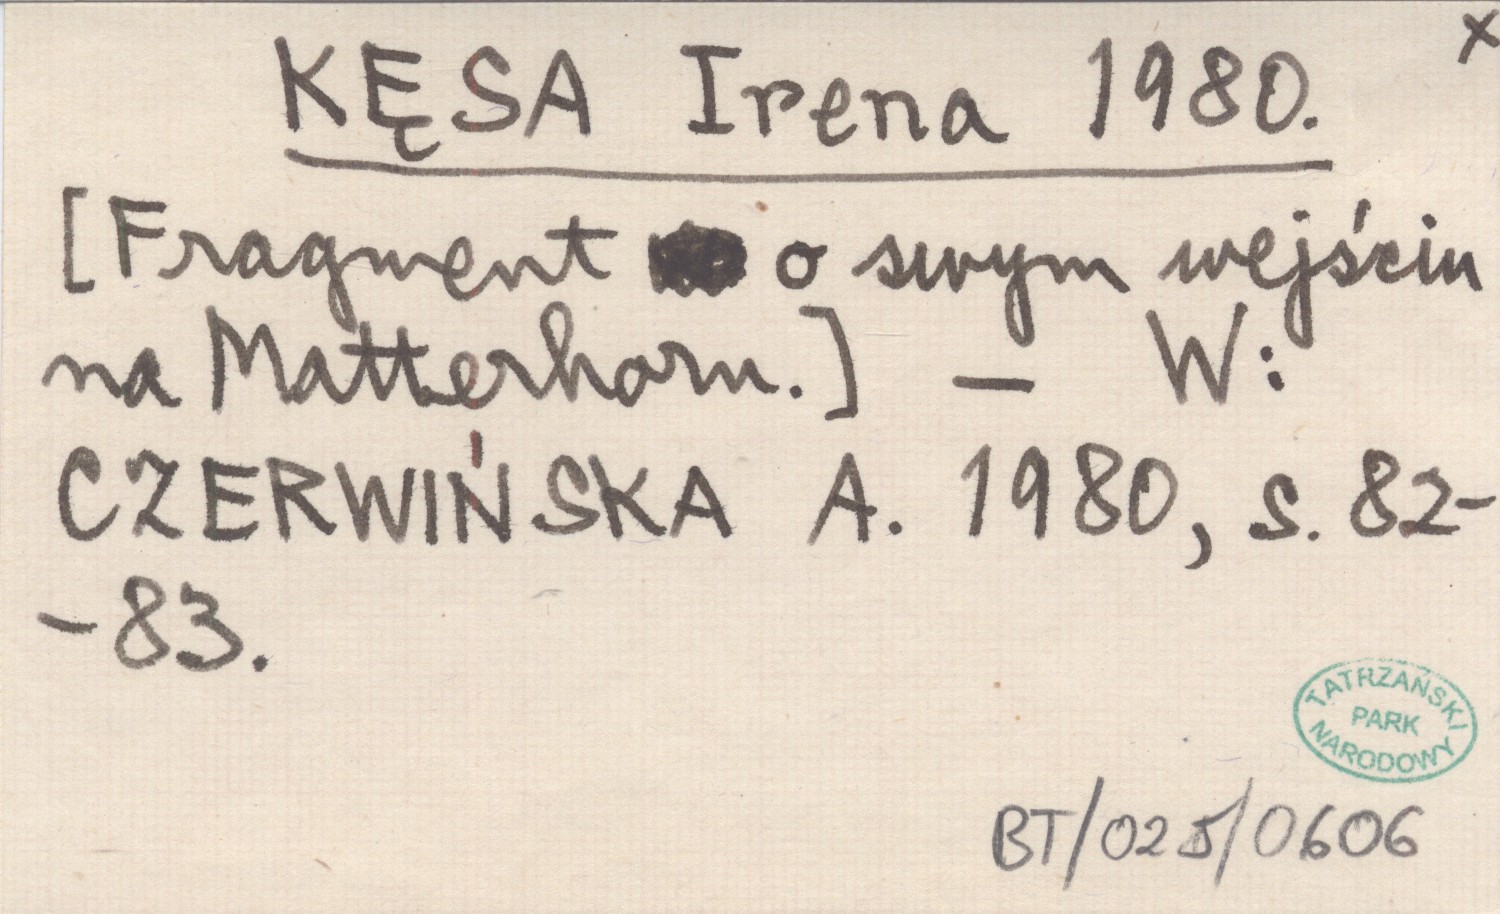 x
KĘSA Irena 1980.
[Fragment o swym wejściu
na Matterhorn.] — W:
CZERWIŃSKA A. 1980, s. 82-
-83.
TATRZAŃSKI
PARK
NARODOWY
BT/025/0606